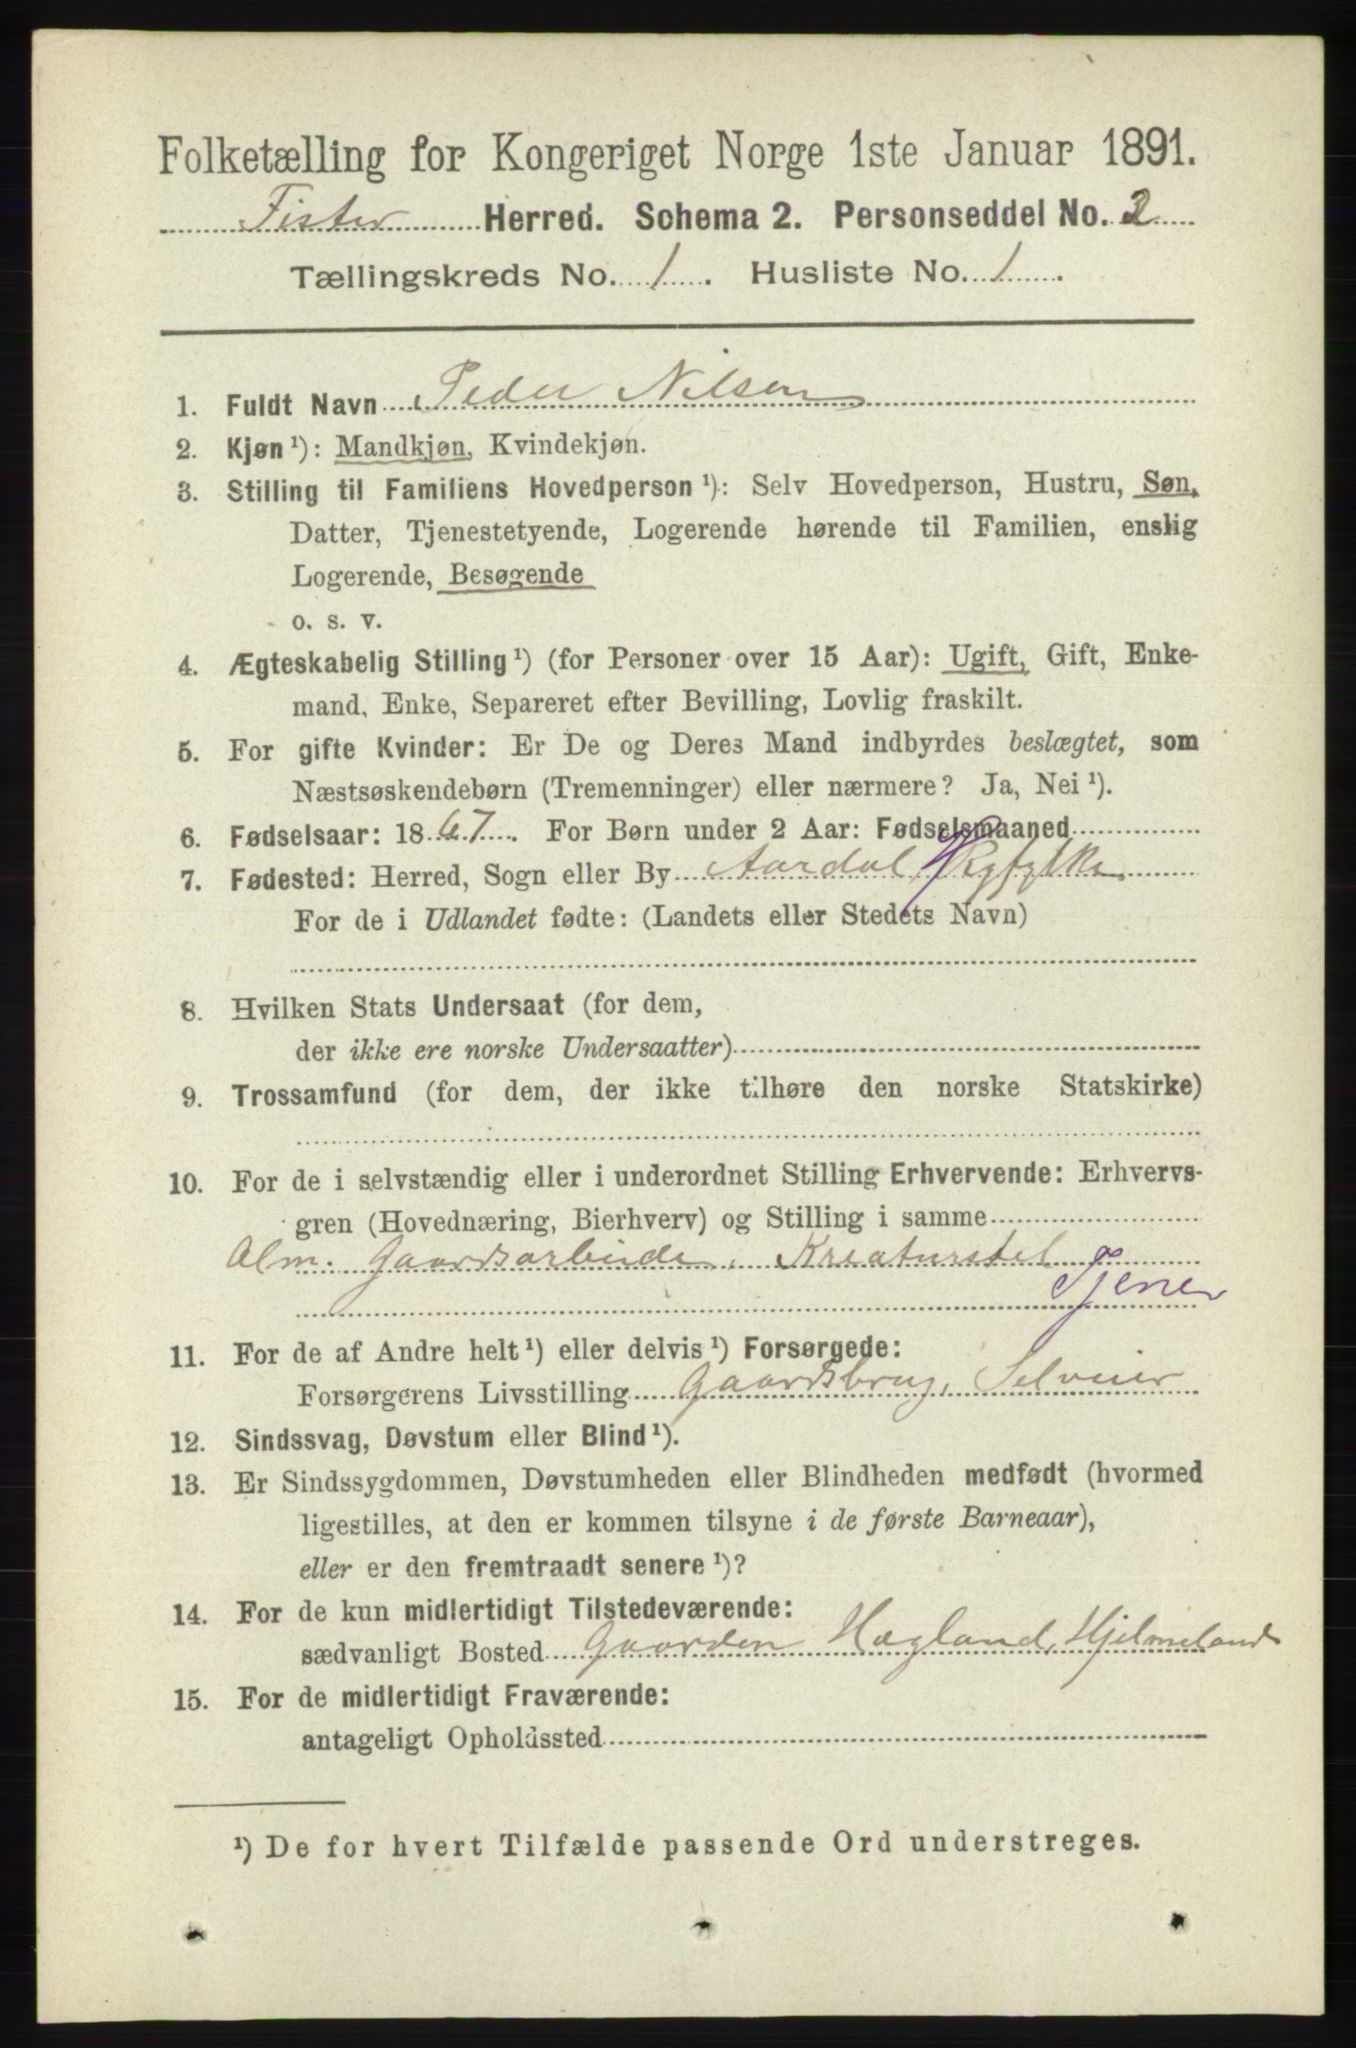 Folketælling for Kongeriget Norge 1ste Januar 1891.
Fister Herred. Schema 2. Personseddel No. 2
Tællingskreds No. 1. Husliste No. 1.
1. Fuldt Navn Peder Nilsen
2. Kjøn ¹): Mandkjøn, Kvindekjøn.
3. Stilling til Familiens Hovedperson ¹): Selv Hovedperson, Hustru, Søn,
Datter, Tjenestetyende, Logerende hørende til Familien, enslig
Logerende, Besøgende
o. s. v.
4. Ægteskabelig Stilling ¹) (for Personer over 15 Aar): Ugift, Gift, Enke-
mand, Enke, Separeret efter Bevilling, Lovlig fraskilt.
5. For gifte Kvinder: Er De og Deres Mand indbyrdes beslægtet, som
Næstsøskendebørn (Tremenninger) eller nærmere? Ja, Nei ¹).
6. Fødselsaar: 1867. For Børn under 2 Aar: Fødselsmaaned
7. Fødested: Herred, Sogn eller By Aardal Ryfylke
For de i Udlandet fødte: (Landets eller Stedets Navn)
8. Hvilken Stats Undersaat (for dem,
der ikke ere norske Undersaatter)
9. Trossamfund (for dem, der ikke tilhøre den norske Statskirke)
10. For de i selvstændig eller i underordnet Stilling Erhvervende: Erhvervs-
gren (Hovednæring, Bierhverv) og Stilling i samme
Alm. Gaardsarbeide, Kreaturstel
Tjener
11. For de af Andre helt ¹) eller delvis ¹) Forsørgede:
Forsørgerens Livsstilling Gaardsbrug, Selveier
12. Sindssvag, Døvstum eller Blind ¹).
13. Er Sindssygdommen, Døvstumheden eller Blindheden medfødt (hvormed
ligestilles, at den er kommen tilsyne i de første Barneaar),
eller er den fremtraadt senere ¹)?
14. For de kun midlertidigt Tilstedeværende:
sædvanligt Bosted Gaarden Hagland, Hjelmeland
15. For de midlertidigt Fraværende:
antageligt Opholdssted
¹) De for hvert Tilfælde passende Ord understreges.